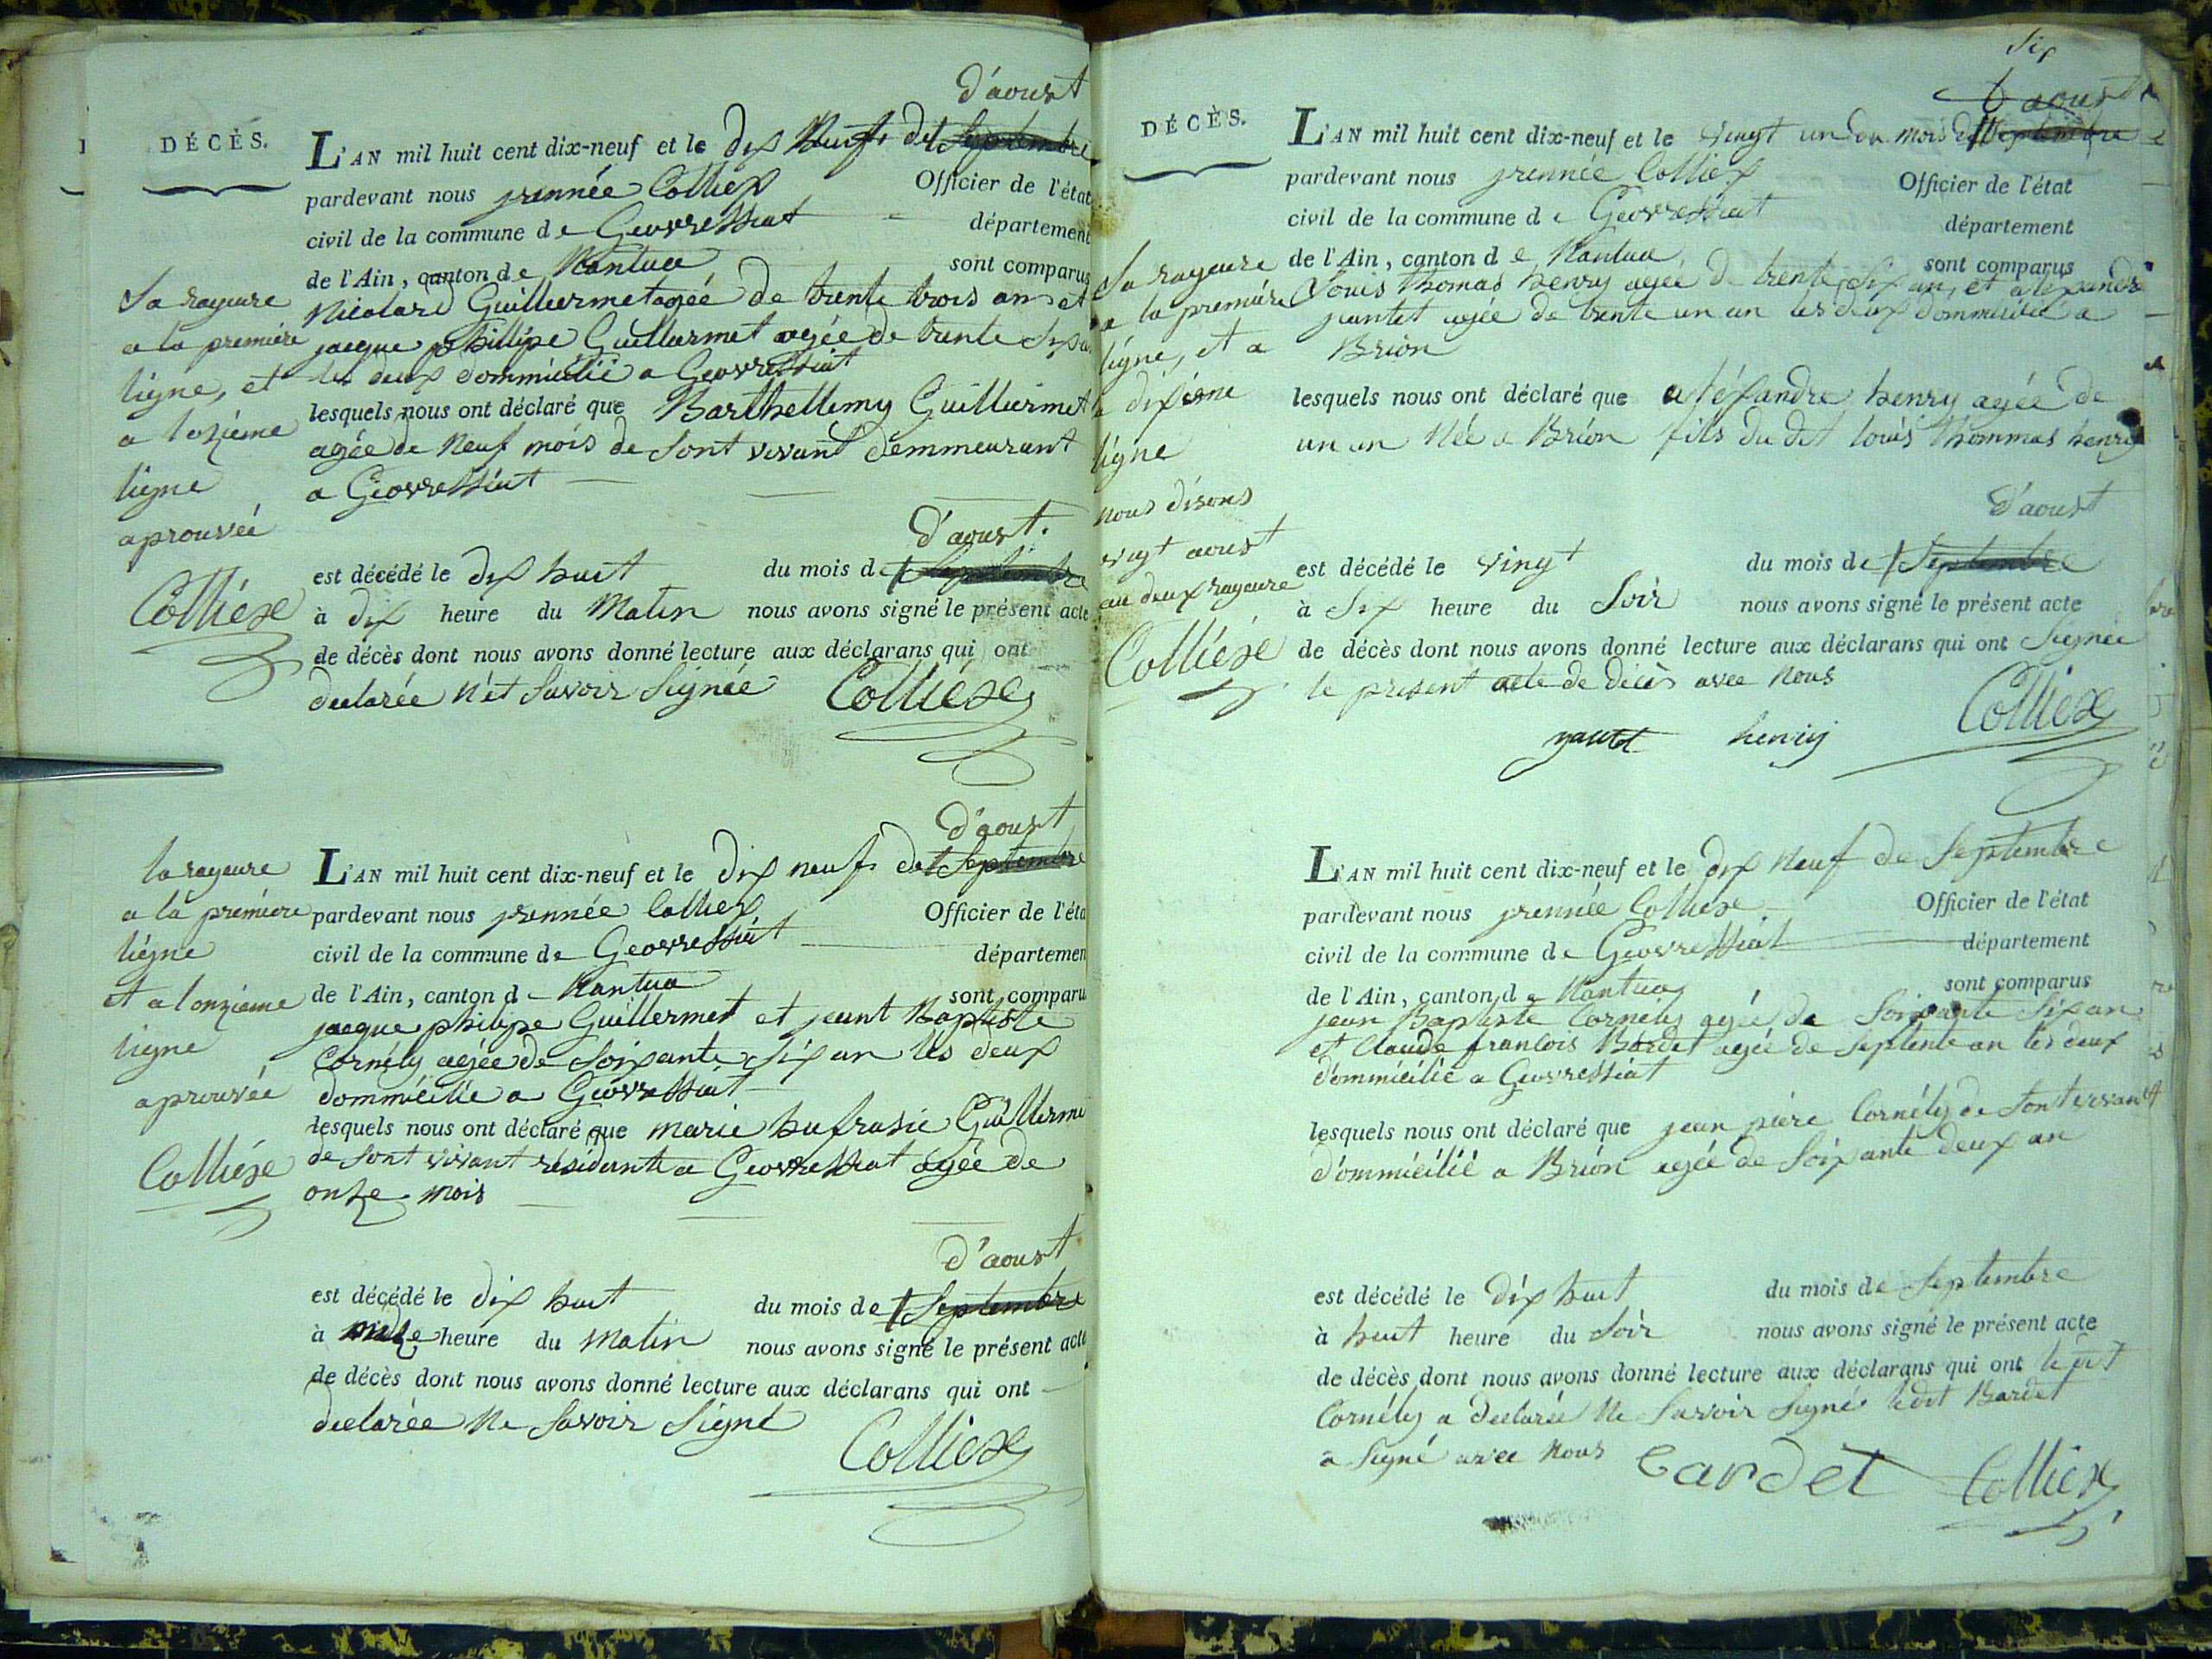 d'aoust
DÉCÈS.
L'AN mil huit cent dix-neuf et le dix Neuf de Septembre
pardevant nous Colliex Officier de l'état
civil de la commune de Geovressiat département
de l'Ain, canton de Nantua sont comparus
Nicolard Guillermet agée de trente trois an et
jacque phillipe Guillermet agée de trente six an
les deux dommicilié a Geovressiat
lesquels nous ont déclaré que Barthellemy Guilliermet
agée de Neuf mois de sont vivant demmeurant
a Geovressiat
d'aoust.
est décédé le dix huit du mois de Septembre
à dix heure du Matin nous avons signé le présent acte
de décès dont nous avons donné lecture aux déclarans qui ont
declarée N'ét Savoir Signée Colliéx
Sa rayeure
a la premiére
ligne, et
a lonzième
ligne
aprouvée
Colliéx
d'aoust
L'AN mil huit cent dix-neuf et le dix neuf de Septembre
pardevant nous Colliex Officier de l'éta
civil de la commune de Geovressiat départemen
de l'Ain, canton de Nantua sont comparu
jacque philipe Guillermet et jeant Baptiste
Cornély agée de Soixante Six an les deux
dommicilié a Geovressiat
lesquels nous ont déclaré que marie hufrasie Guillerme
de sont vivant résidante a Geovressiat agée de
onze mois
d'aoust
est décédé le dix huit du mois de Septembre
à heure du Matin nous avons signé le présent acte
de décès dont nous avons donné lecture aux déclarans qui ont
declarée Ne Savoir Signé
Colliex
la rayeure
a la premiere
ligne
et a lonzieme
ligne
aprouvée
Colliéx
Six
d'aoust
DÉCÈS.
L'AN mil huit cent dix-neuf et le vingt un du mois de Septembre
pardevant nous Colliex Officier de l'état
civil de la commune de Geovressiat département
de l'Ain, canton de Nantua sont comparus
Louis thomas henry agée de trente Six an, et alexandre
jantet agée de trente un an les deux dommicilié a
Brion
lesquels nous ont déclaré que aléxandre henry agée de
un an Née a Brion fils du dit louis thommas henry
d'aoust
est décédé le vingt du mois de Septembre
à Six heure du Soir nous avons signé le présent acte
de décès dont nous avons donné lecture aux déclarans qui ont Signée
le present acte de décès avec Nous
henry Colliex
Sa rayeure
a la premiére
ligne, et a
ligne
nous disons
vingt aoust
au deux rayeure
Colliéx
L'AN mil huit cent dix-neuf et le dix Neuf de Septembre
pardevant nous Colliex Officier de l'état
civil de la commune de Geovressiat département
de l'Ain, canton de Nantua sont comparus
jean Baptiste Cornély agée de Soixante Six an
et Claude franlois Bardet agée de septente an les deux
d'ommicilié a Geovressiat
lesquels nous ont déclaré que jean piére Cornély de sont vivant
d'ommicilié a Brion agée de Soixante deux an
est décédé le dix huit du mois de Septembre
à huit heure du Soir nous avons signé le présent acte
de décès dont nous avons donné lecture aux déclarans qui ont
Cornély a declarée Ne Savoir Signé ledit Bardet
a Signé avec Nous Bardet Colliex